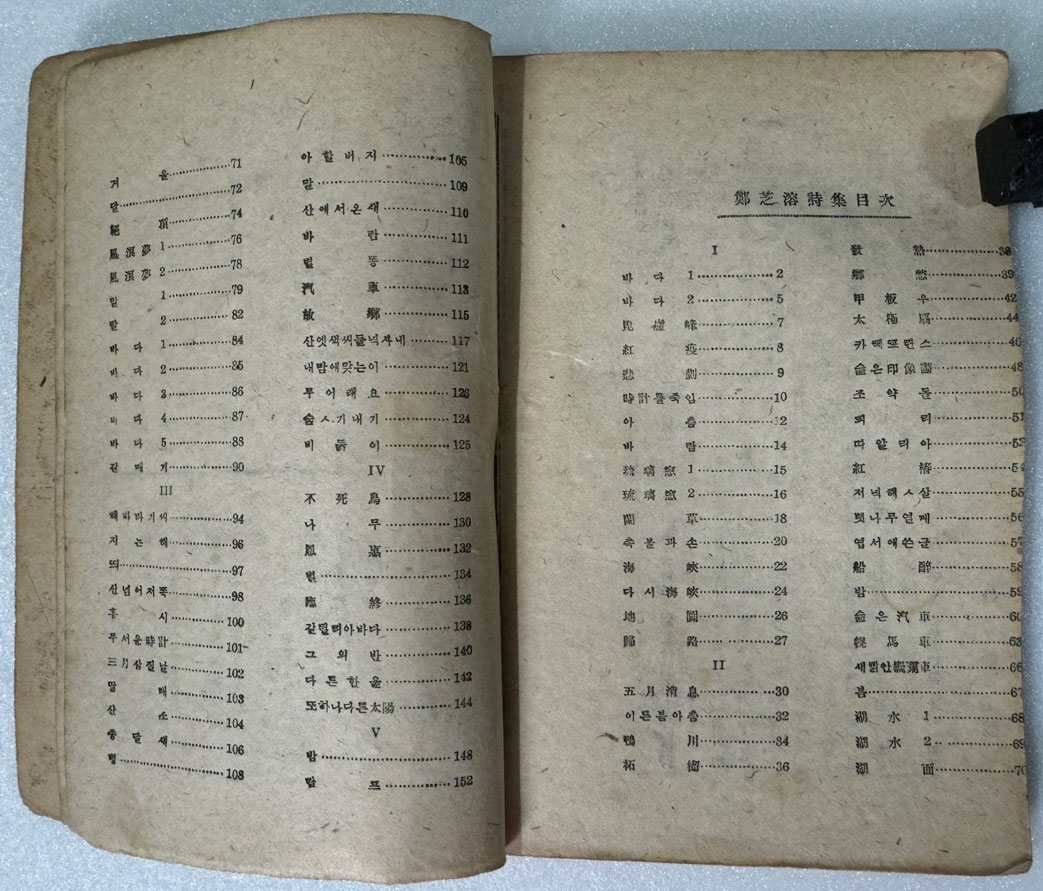 鄭芝溶詩集目次
I
바다 1 2
바다 2 5
毘盧峰 7
紅疫 8
悲劇 9
時計를죽임 10
아츰 12
바람 14
琉璃窓 1 15
琉璃窓 2 16
蘭草 18
촉불과손 20
海峽 22
다시海峽 24
地圖 26
歸路 27
II
五月消息 30
이른봄아츰 32
鴨川 34
柘榴 36
發熱 38
鄕愁 39
甲板우 42
太極扇 44
카떼프란스 46
슬픈印像畵 48
조약돌 50
피리 51
따알리아 52
紅椿 54
저녁해ㅅ살 55
벗나무열매 56
엽서에쓴글 57
船醉 58
밤 59
슬픈汽車 60
幌馬車 63
새빩안機關車 66
봄 67
湖水 1 68
湖水 2 69
湖面 70
겨울 71
달 72
絕頂 74
風浪夢 1 76
風浪夢 2 78
말 1 79
말 2 82
바다 1 84
바다 2 85
바다 3 86
바다 4 87
바다 5 88
갈매기 90
III
해바라기씨 94
지는해 96
띄 97
산넘어저쪽 98
홍시 100
무서운時計 101
三月삼질날 102
딸레 103
산소 104
종달새 106
병 108
아할버지 105
말 109
산에서온새 110
바람 111
별똥 112
汽車 113
故鄕 115
산엣색씨들녁사내 117
내맘에맞는이 121
무어래요 123
숨ㅅ기내기 124
비듥이 125
IV
不死鳥 128
나무 130
恩惠 132
별 134
臨終 136
갈릴레아바다 138
그의반 140
다른한울 142
또하나다른太陽 144
V
밤 148
람프 152